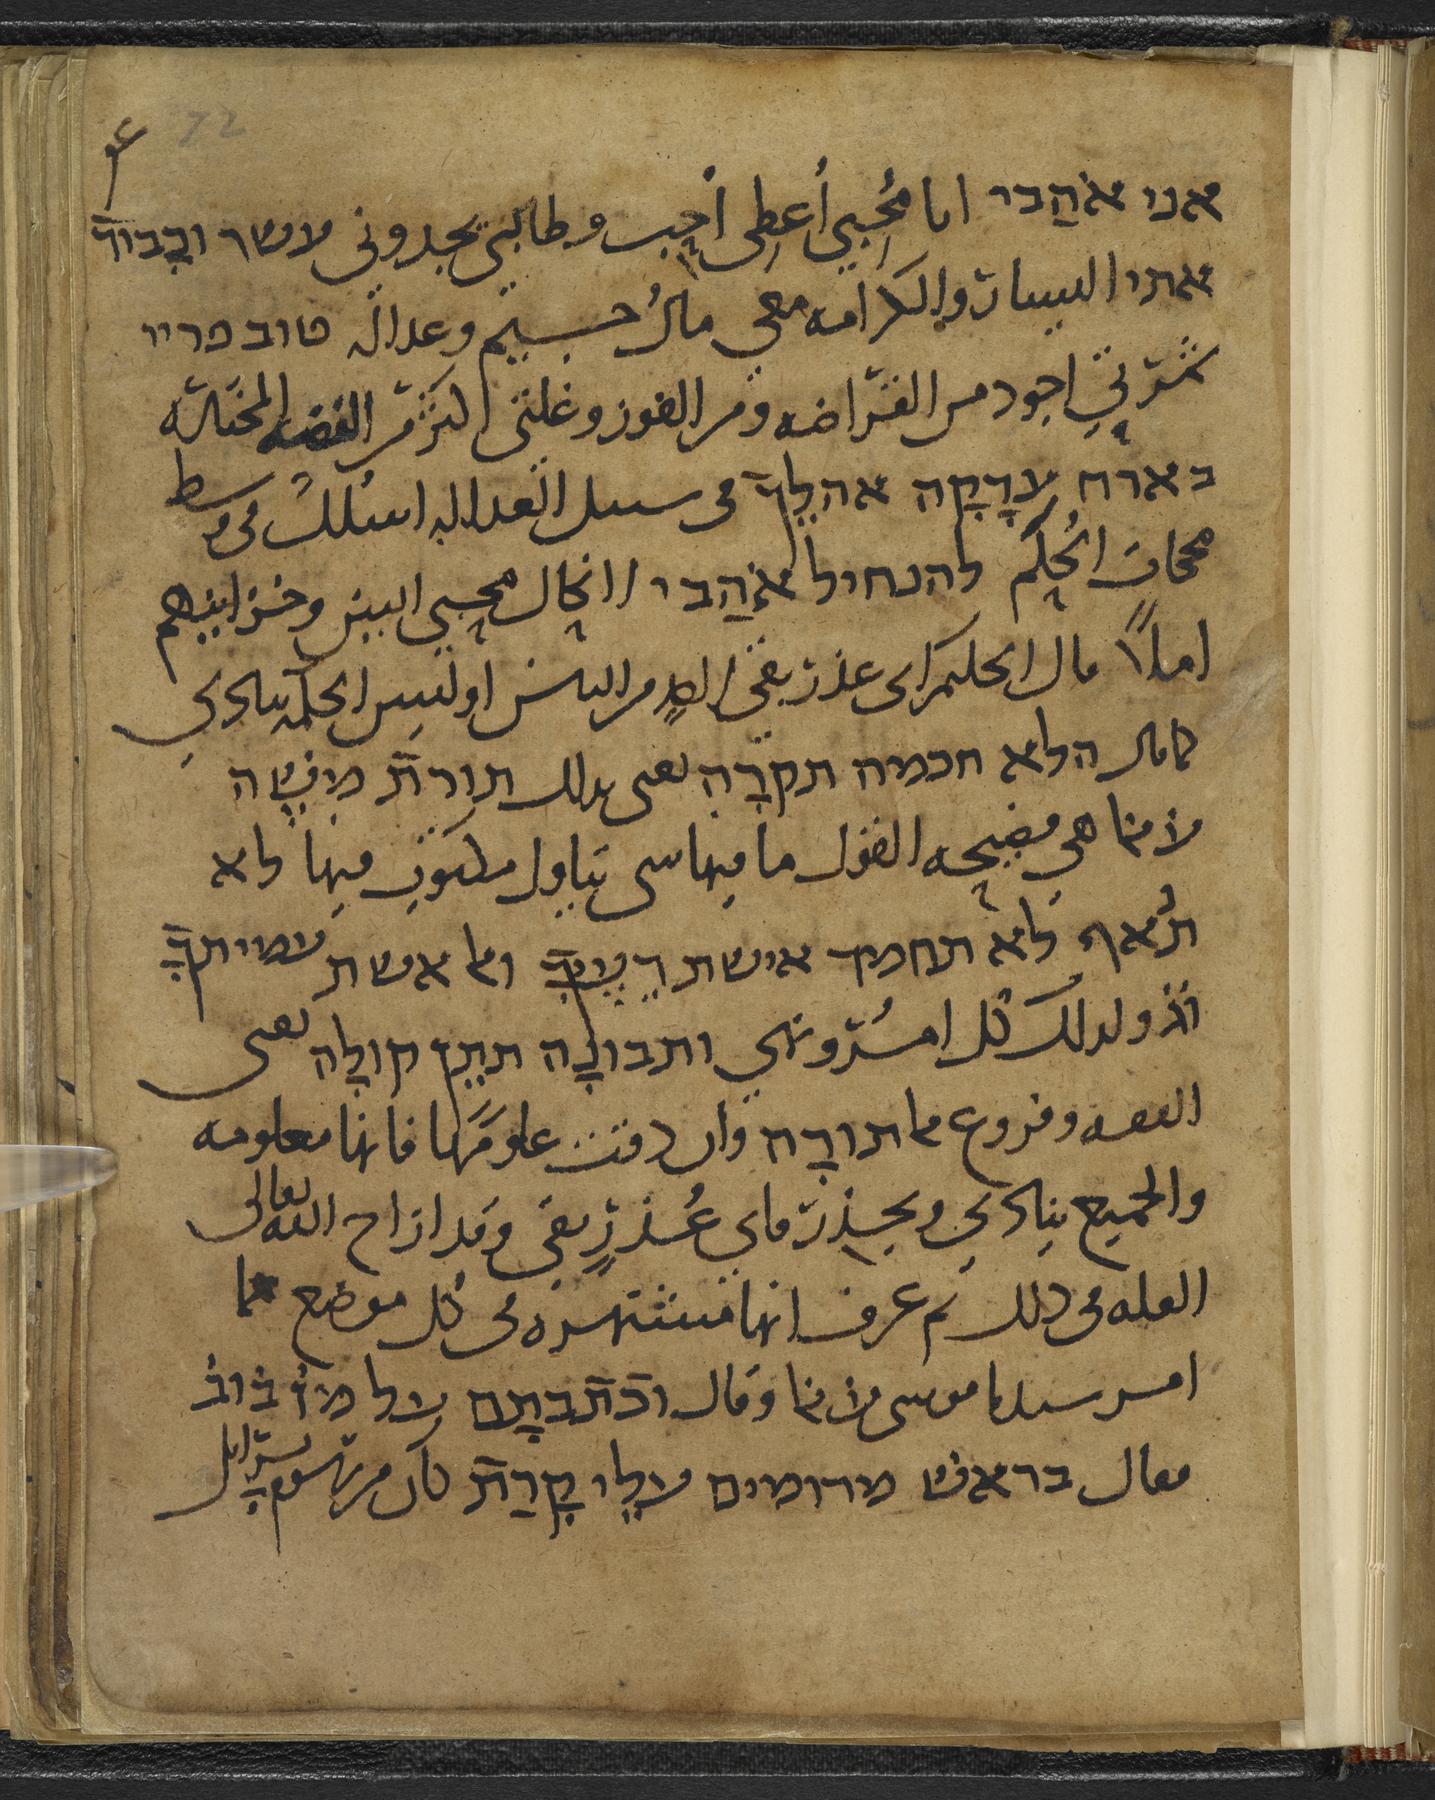 72
אני אֹהַבי انا مُحِبيَّ أُعطي أُحِب وطالبيَّ يجدوني עשר וכָבוד
אתי اليسار والكرامه معي مالُ جسيم وعداله טוב פריי
ثمرتي اجود من القراضه ومن الفوز وغلتي اكثر من الفضه المختاره
בארח צדָקָה אהלֵך في سبيل العداله اسلك في وسط
محجات الحكم להנחיל אֹהַבי لانحال محبي اليس وخزاينهم
املأ قال الحكيم اي عذر بقي للناس اوليس الحكمه تنادي
كما قال הלא חכמה תקרָה يعني بذلك תורת מֹשֶה
لانما هي فصيحه القول ما فيها شي يتاول فيها לא
תנאף לא תחמד אישת רֵעֶיךָ ולא אשת עמיתךָ
ולذلك كل امر ونهي ותבונָה תִתֵן קולָה يعني
الفقه وفروع ما תורָה وان دقت علومها فانها معلومه
والجميع ينادي ويحذر فاي عُذر بقي وقد ازاح الله تعالى
العله في ذلك ثم عرف انها مشتهره في كل موضع كما
امر سيدنا موسى لانما وقال וכתבתָם על מזֻזות
فقال בראש מרומים עלֵי קָרֶת كان من يسرايل